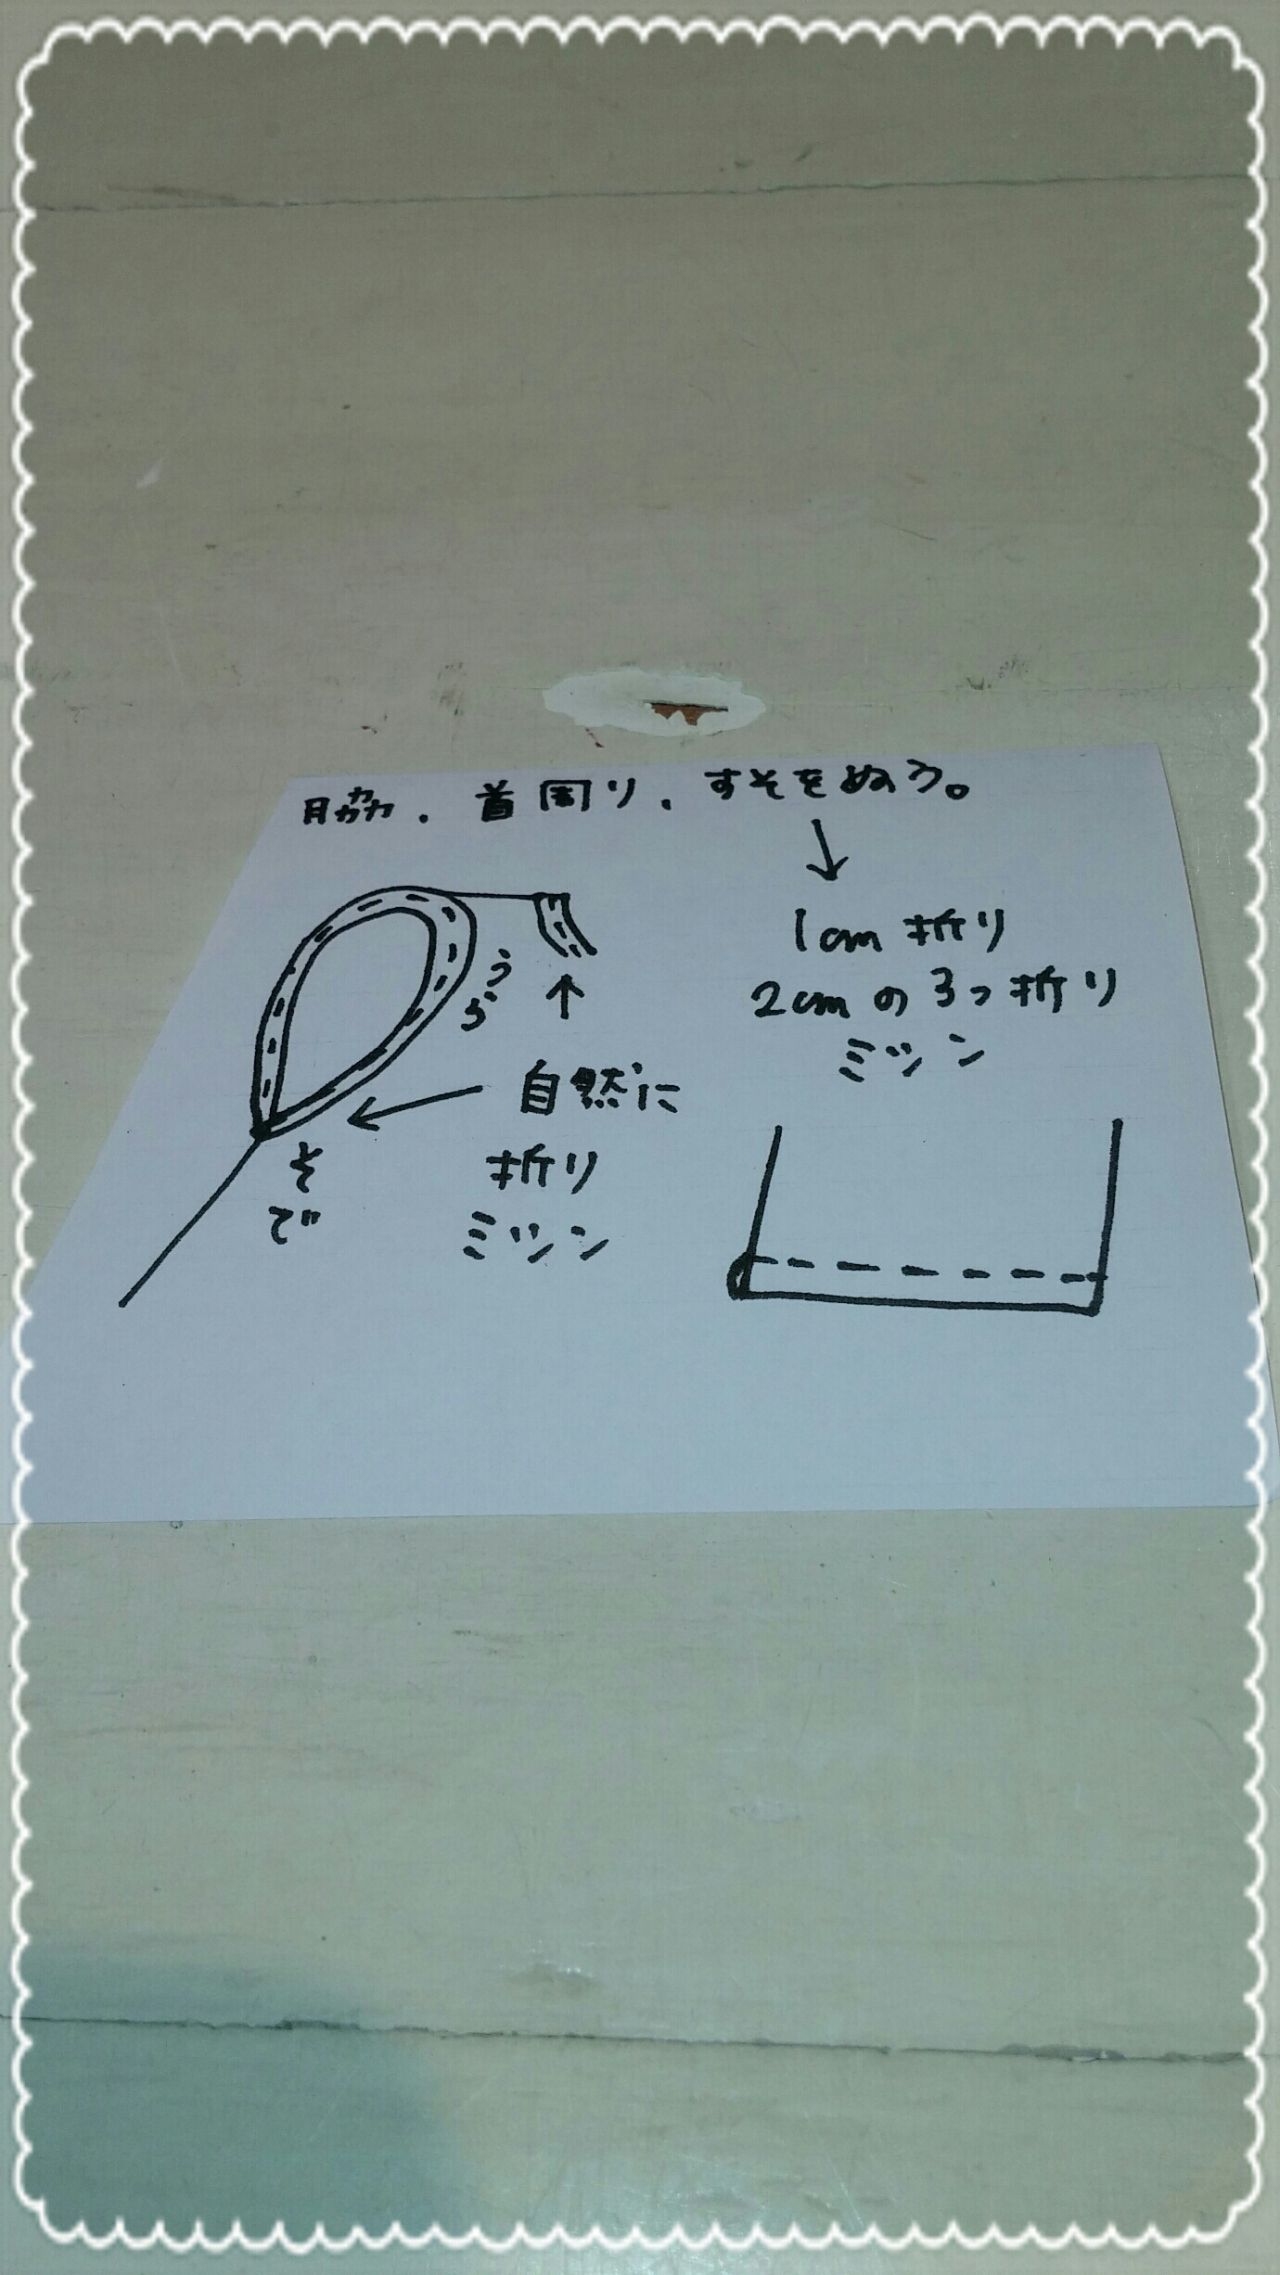 脇、首周り、すそをぬう。
↓
1cm 折り
2cmの3つ折り
ミシン
うら
↑
← 自然に
折り
ミシン
そで